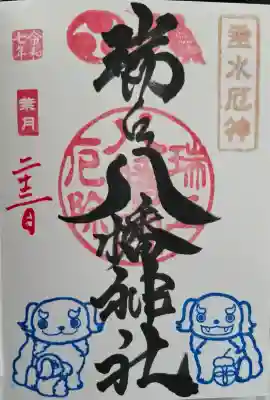 垂水厄神
瑞丘八幡神社
令和
七年
葉月
二十三日